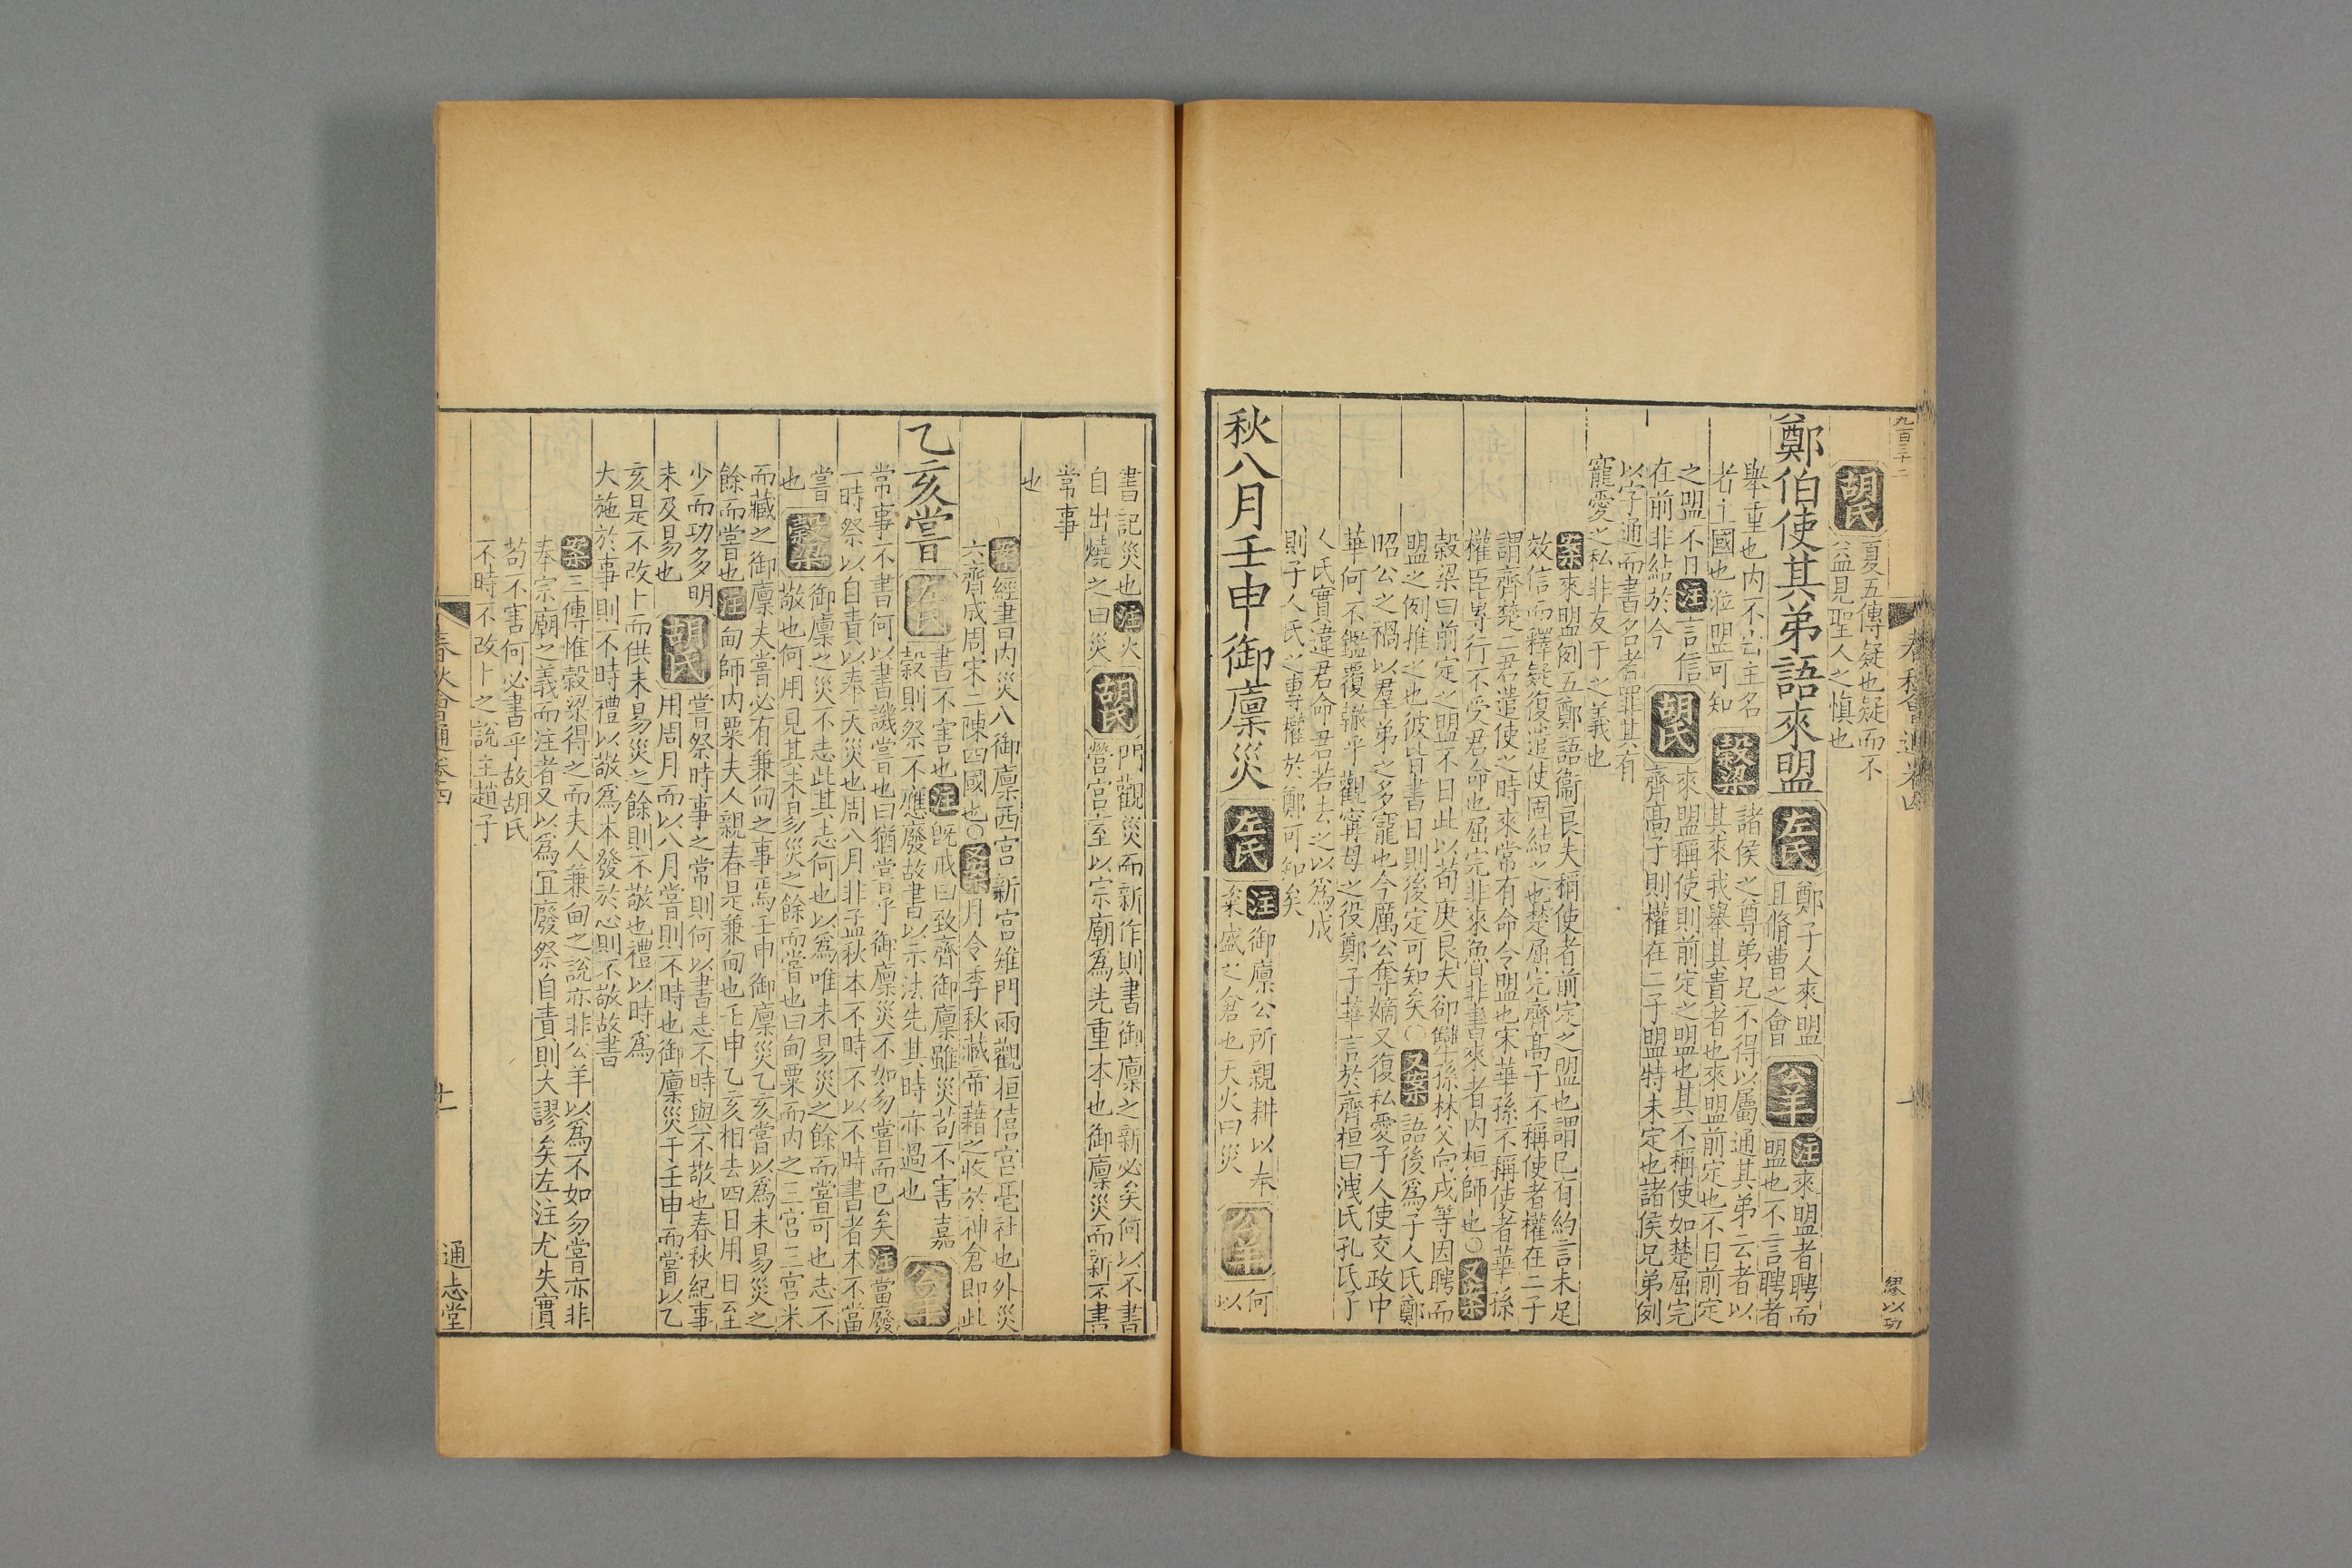 九百三十二
春秋會通卷四
繆以功
胡氏 夏五傳疑也疑而不
益見聖人之慎也
鄭伯使其弟語來盟 左氏 鄭子人來盟
且脩曹之會 公羊 注來盟者聘而
盟也不言聘者
舉重也内不出主名
者主國也涖盟可知 穀梁 諸侯之尊弟兄不得以屬通其弟云者以
其來我舉其貴者也來盟前定也不日前定
之盟不日注言信
在前非結於今 胡氏 來盟稱使則前定之盟也其不稱使如楚屈完
齊高子則權在二子盟特未定也諸侯兄弟例
以字通而書名者罪其有
寵愛之私非友于之義也
案來盟例五鄭語衞良夫稱使者前定之盟也謂已有約言未足
效信而釋疑復遣使固結之也楚屈完齊高子不稱使者權在二子
謂齊楚二君遣使之時來常有命令盟也宋華孫不稱使者華孫
權臣專行不受君命也屈完非來魯非書來者内桓師也○又案
穀梁曰前定之盟不日此以荀庚良夫郤犫孫林父向戌等因聘而
盟之例推之也彼皆書日則後定可知矣○又案語後爲子人氏鄭
昭公之禍以羣弟之多寵也今厲公奪嫡又復私愛子人使交政中
華何不鑑覆轍乎觀甯母之役鄭子華言於齊桓曰洩氏孔氏子
人氏實違君命君若去之以爲成
則子人氏之專權於鄭可知矣
秋八月壬申御廩災 左氏 注御廩公所親耕以奉
粢盛之倉也天火曰災 公羊 何
以
書記災也注火
自出燒之曰災 胡氏 門觀災而新作則書御廩之新必矣何以不書
營宮室以宗廟爲先重本也御廩災而新不書
常事
也
案經書内災八御廩西宮新宮雉門兩觀桓僖宮亳社也外災
六齊成周宋二陳四國也○又案月令季秋藏帝藉之收於神倉即此
乙亥嘗 左氏 書不害也注旣戒曰致齊御廩雖災苟不害嘉
穀則祭不應廢故書以示法先其時亦過也 公羊
常事不書何以書譏嘗也曰猶嘗乎御廩災不如勿嘗而已矣注當廢
一時祭以自責以奉天災也周八月非孟秋本不時不以不時書者本不當
嘗也 穀梁 御廩之災不志此其志何也以爲唯未易災之餘而嘗可也志不
敬也何用見其未易災之餘而嘗也曰甸粟而内之三宮三宮米
而藏之御廩夫嘗必有兼甸之事焉壬申御廩災乙亥嘗以爲未易災之
餘而嘗也注甸師内粟夫人親舂是兼甸也壬申乙亥相去四日用日至
少而功多明
未及易也 胡氏 嘗祭時事之常則何以書志不時與不敬也春秋紀事
用周月而以八月嘗則不時也御廩災于壬申而嘗以乙
亥是不改卜而供未易災之餘則不敬也禮以時爲
大施於事則不時禮以敬爲本發於心則不敬故書
案三傳惟穀梁得之而夫人兼甸之說亦非公羊以爲不如勿嘗亦非
奉宗廟之義而注者又以爲宜廢祭自責則大謬矣左注尤失實
苟不害何必書乎故胡氏
不時不改卜之說主趙子
春秋會通卷四
十一
通志堂